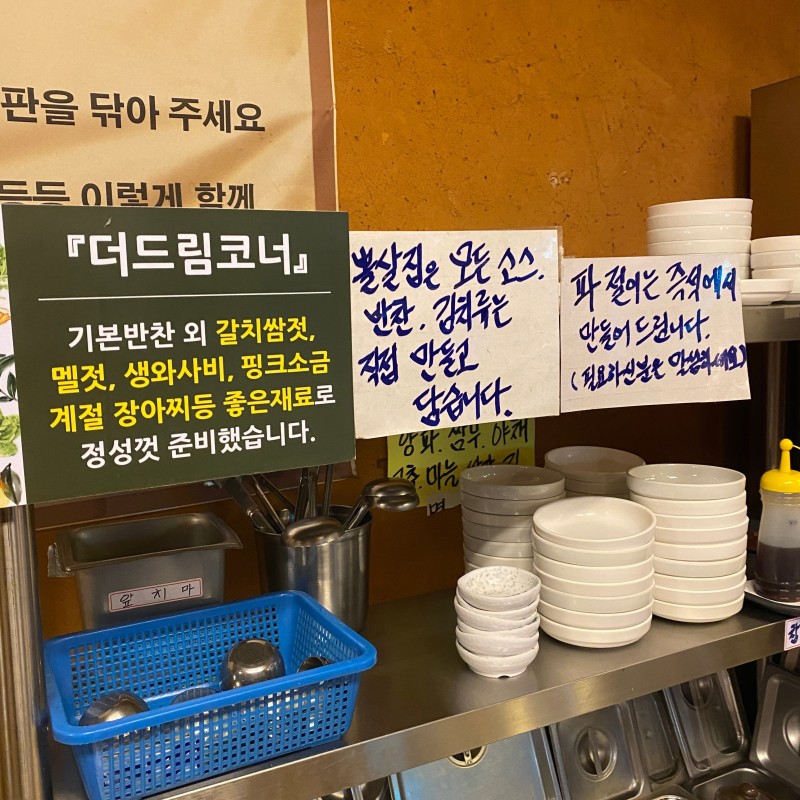 판을 닦아 주세요
등등 이렇게 함께
『더드림코너』
기본반찬 외 갈치쌈젓,
멜젓, 생와사비, 핑크소금
계절 장아찌등 좋은재료로
정성껏 준비했습니다.
뽈살집은 모든 소스.
반찬. 김치류는
직접 만들고
담습니다.
파 절이는 즉석에서
만들어 드립니다.
(필요하신분은 말씀하세요)
쌈무. 야채
마늘
앞치마